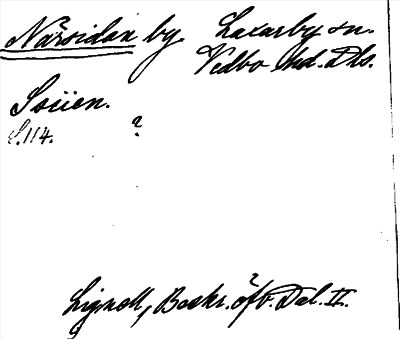 Närsidan by. Laxarby sn.
Vedbo hd. Dls.
Socken.
S. 114. ?
Lignell, Beskr. öfv. Dal. II.